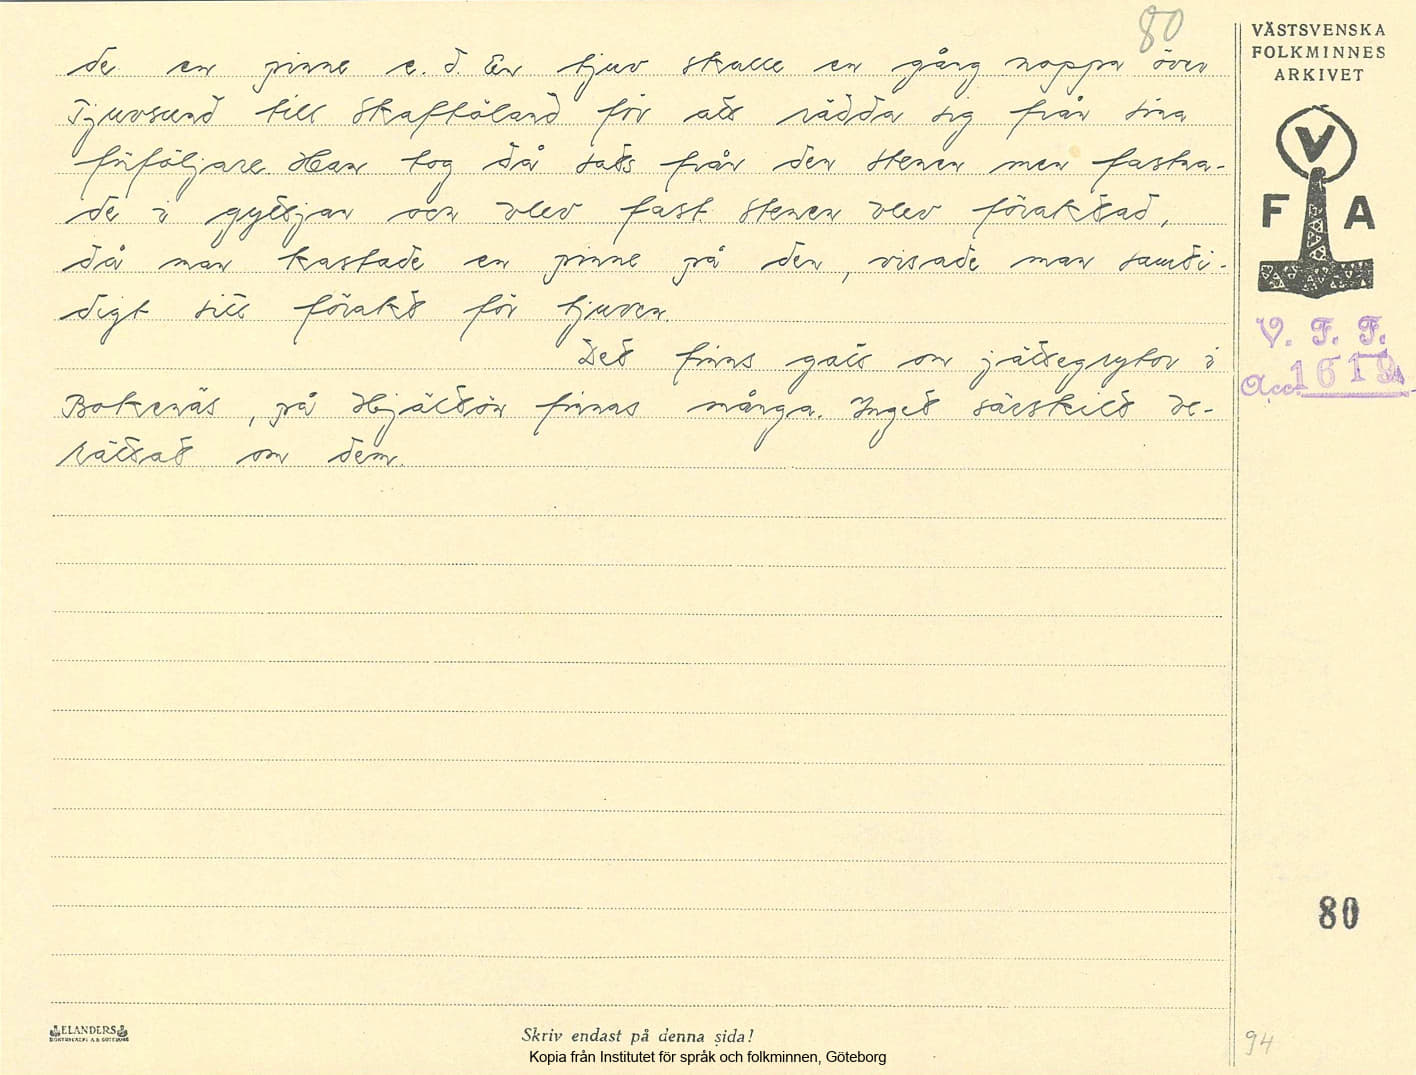 80
VÄSTSVENSKA
FOLKMINNES
ARKIVET
de en pinne e. d. En tjuv skulle en gång hoppa över
Tjuvsund till Skaftöland för att rädda sig från sina
förföljare. Han tog då sats från den stenen men fastna-
de i gyttjan och blev fast. Stenen blev föraktad,
då man kastade en pinne på den, visade man samti-
digt sitt förakt för tjuven.
Det finns gott om jättegrytor i
Bokenäs, på Hjältön finnas många. Inget särskilt be-
rättat om dem.
V
F A
V. F. F.
Acc. 1619
80
ELANDERS
BOKTRYCKERI A.B. GÖTEBORG
Skriv endast på denna sida!
Kopia från Institutet för språk och folkminnen, Göteborg
94